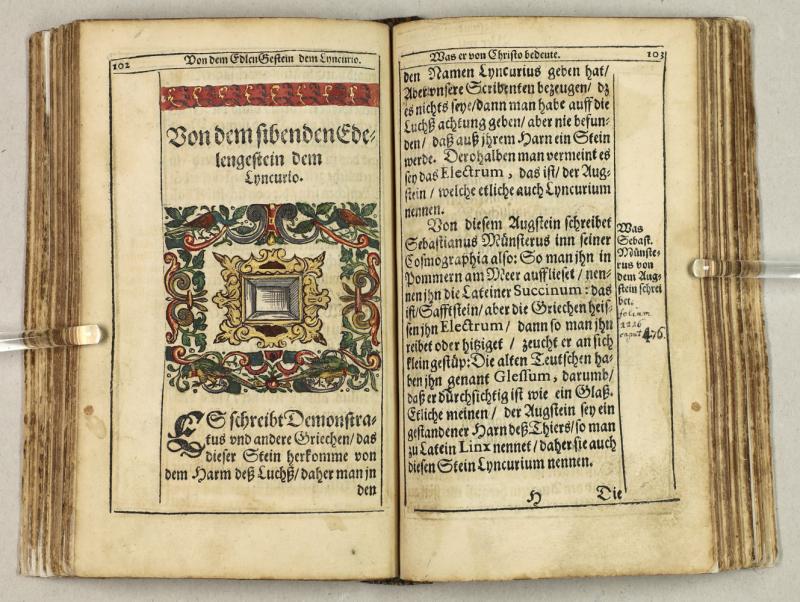 102
Von dem Edlen Gestein dem Lyncurio.
Von dem sibenden Ede-
lengestein dem
Lyncurio.
ES schreibt Demonstra-
tus vnd andere Griechen/ das
dieser Stein herkomme von
dem Harm deß Luchß/ daher man jn
den
Was er von Christo bedeute.
103
den Namen Lyncurius geben hat/
Aber vnsere Scribenten bezeugen/ dz
es nichts seye/ dann man habe auff die
Luchß achtung geben/ aber nie befun-
den/ daß auß jhrem Harn ein Stein
werde. Derohalben man vermeint es
sey das Electrum, das ist/ der Aug-
stein/ welche etliche auch Lyncurium
nennen.
Von diesem Augstein schreibet
Sebastianus Münsterus inn seiner
Cosmographia also: So man jhn in
Pommern am Meer aufflieset/ nen-
nen jhn die Lateiner Succinum: das
ist/ Safftstein/ aber die Griechen heis-
sen jhn Electrum/ dann so man jhn
reibet oder hitziget/ zeucht er an sich
klein gestüp: Die alten Teutschen ha-
ben jhn genant Glessum, darumb/
daß er durchsichtig ist wie ein Glaß.
Etliche meinen/ der Augstein sey ein
gestandener Harn deß Thiers/ so man
zu Latein Linx nennet/ daher sie auch
diesen Stein Lyncurium nennen.
H
Die
Was
Sebast.
Münste-
rus von
dem Aug-
stein schrei
bet.
folium
1226
caput 476.